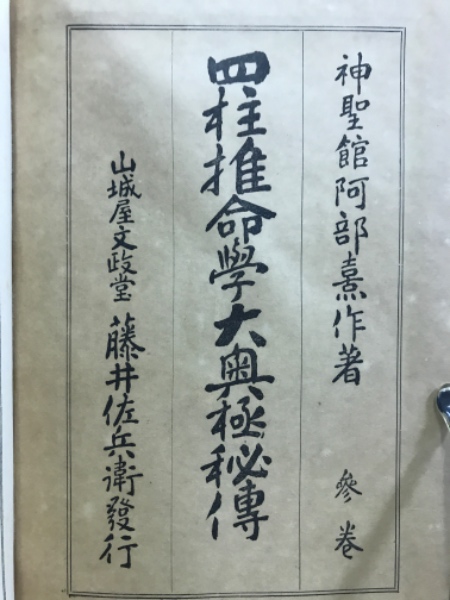 神聖館阿部熹作著 參卷
四柱推命學大奧極秘傳
山城屋文政堂 藤井佐兵衛發行